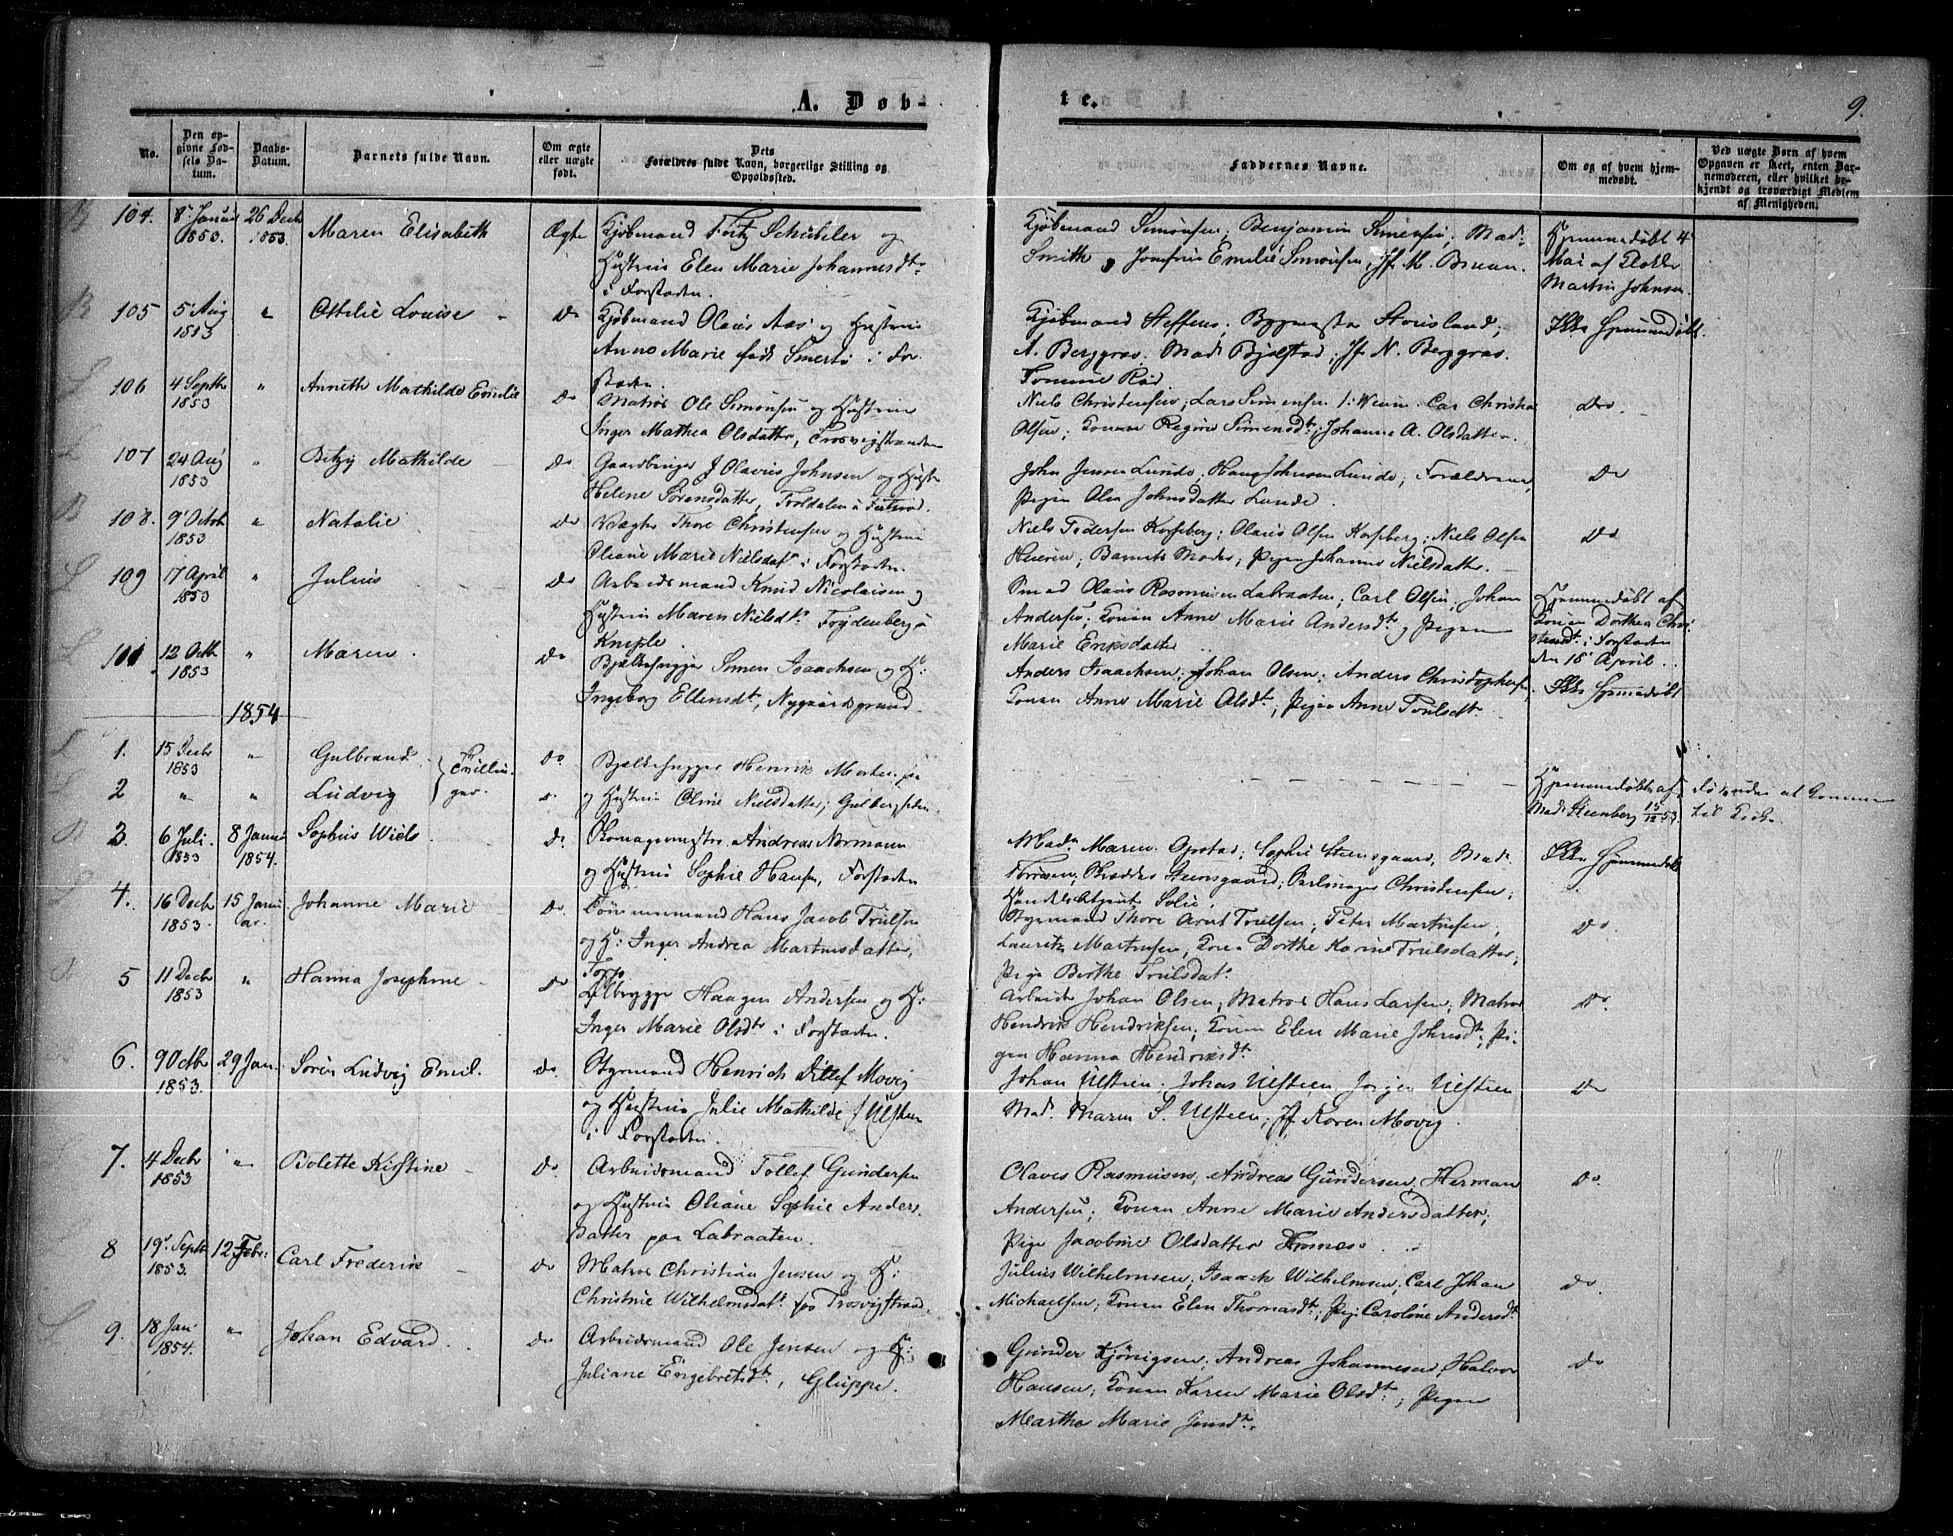 A. Døb-
te.
9.
No.
Den op-
givne Fød-
sels Da-
tum.
Daabs-
Datum.
Barnets fulde Navn.
Om ægte
eller uægte
født.
Dets
Forældres fulde Navn, borgerlige Stilling og
Opholdssted.
Faddernes Navne.
Om og af hvem hjem-
medøbt.
Ved uægte Børn af hvem
Opgaven er skeet, enten Bar-
nemoderen, eller hvilket be-
kjendt og troværdigt Medlem
af Menigheden.
104. 8 Januar 1853. 26 Decbr 1853. Maren Elisabeth Ægte
Kjøbmand Fritz Schübeler og
Hustrue Elen Marie Johannesdtr
i Forstaden.
Kjøbmand Simonsen; Benjamin Simensen; Mad:
Smith, Josefine Emilie Simonsen, Jf. M. Bruun.
Hjemmedøbt 4
Mai af Klokker
Martin Johnsen.
105 5 Aug 1853 " Ottilie Louise Do
Kjøbmand Olaus Aas og Hustrue
Anne Marie født i For-
staden.
Kjøbmand Steffens; Bygmester
A. Berggrav. Mad. Bjølstad; Jf. N. Berggrav.
Tomine Røed
Ikke Hjemmedøbt.
106 4 Septbr 1853 " Anneth Mathilde Emilie Do
Matros Ole Simonsen og Hustrue
Inger Mathea Olsdatter, Trosvigstranden
Niels Christensen; Lars Simensen Carl Christian
Olsen; Konen Regine Simensdtr; Johanne A. Olsdatter.
Do.
107 24 Aug 1853 " Betzy Mathilde Do
Gaardbruger J. Olavus Johnsen og Hustr
Helene Sørensdatter, Troldalen i
John Jensen Lunde; Hans Johnsen Lunde; Forældrene;
Pigen Olea Johnsdatter Lunde.
Do
108. 9 Octbr 1853 " Natalie Do
Vægter Thore Christensen og Hustrue
Oliane Marie Nielsdatr i Forstaden
Niels Pedersen Korseberg; Olaus Olsen Korseberg; Niels Olsen
Barnets Moder; Pigen Johanne Nielsdatter.
Do
109 17 April 1853 " Julius Do
Arbeidsmand Knud Nicolaisen og
Hustrue Maren Nielsdtr Frydenberg i
Kniple.
Smed Olaus Rasmusen Labraaten; Carl Olsen, Johan
Andersen; Konen Anne Marie Andersdtr og Pigen
Marie Eriksdatter
Hjemmedøbt af
Konen Dorthea Chri-
stensdtr i Forstaden
den 18 April.
12 Octbr 1853 " Maren Do
Bjelkehugger Simen Isaachsen og H:
Ingeborg Ellensdtr, Nygaardsgrund
Anders Isaachsen; Johan Olsen; Anders Christophersen,
Konen Anne Marie Olsdtr; Pigen Anne Troelsdtr.
Ikke Hjemmedøbt
1854
1. 15 Decbr 1853 " Gulbrand Do
2 " " Ludvig Tvillin-
ger.
Bjelkehugger Henrik Mortensen
og Hustrue Oline Nielsdatter; Gulbergsiden
Hjemmedøbt af
Mad: Steenberg 15/12 53.
døde uden at komme
til Kirke.
3. 6 Juli 1853 8 Januar 1854. Sophus Wiels Do
Andreas Normann
og Hustrue Sophie Hansen, Forstaden
Madm Maren Opstad; Sophie Steensgaard, Mad:
Steensgaard; Christensen;
Handelsagent Solie,
Ikke Hjemmedøbt
4. 16 Decbr 1853. 15 Janu-
ar. Johanne Marie Do
Tømmermand Hans Jacob Trulsen
og H: Inger Andrea Martinusdatter,
Torp.
Styrmand Thore Arnt Trulsen; Peter Martinusen;
Lauritz Martinusen; Konen Dorthe Karine Trulsdatter;
Pige Berthe Trulsdatr
Do.
5 11 Decbr 1853 " Hanna Josephine Do
Ølbrygger Haagen Andersen og H:
Inger Marie Olsdtr i Forstaden.
Arbeider Johan Olsen; Matros Hans Larsen; Matros
Hendrik Hendriksen; Konen Elen Marie Johnsdtr; Pi-
gen Hanna Hendriksdtr
Do.
6. 9 Octbr 1853. 29 Jan. Søren Ludvig Emil. Do.
Styrmand Henrich Ditlef Movig
og Hustrue Julie Mathilde f Ulsteen
i Forstaden.
Johan Ulsteen; Johas Ulsteen, Jørgen Ulsteen
Mad. Maren S. Ulsteen; Jf. Karen Movig.
Do
7. 4 Decbr 1853 " Bolette Kirstine Do
Arbeidsmand Tollef Gundersen
og Hustrue Oliane Sophie Anders-
datter paa Labraaten.
Olaves Rasmusen, Andreas Gundersen, Herman
Andersen; Konen Anne Marie Andersdatter;
Pige Jacobine Olsdatter
Do.
8 19 Septbr 1853. 12 Febr: Carl Frederik Do
Matros Christian Jensen og H:
Christine Wilhelmsdatr paa Trosvigstrand.
Julius Wilhelmsen; Isaack Wilhelmsen; Carl Johan
Michaelsen; Konen Elen Thomasdtr; Pige Caroline Andersdtr
Do
9. 18 Jan 1854. " Johan Edvard. Do
Arbeidsmand Ole Jensen og H:
Juliane Engebretsdtr, Gluppe.
Gunder Kjönigsen, Andreas Johannesen, Halvor
Hansen; Konen Karen Marie Olsdtr; Pigen
Marthe Marie Jensdtr.
Do